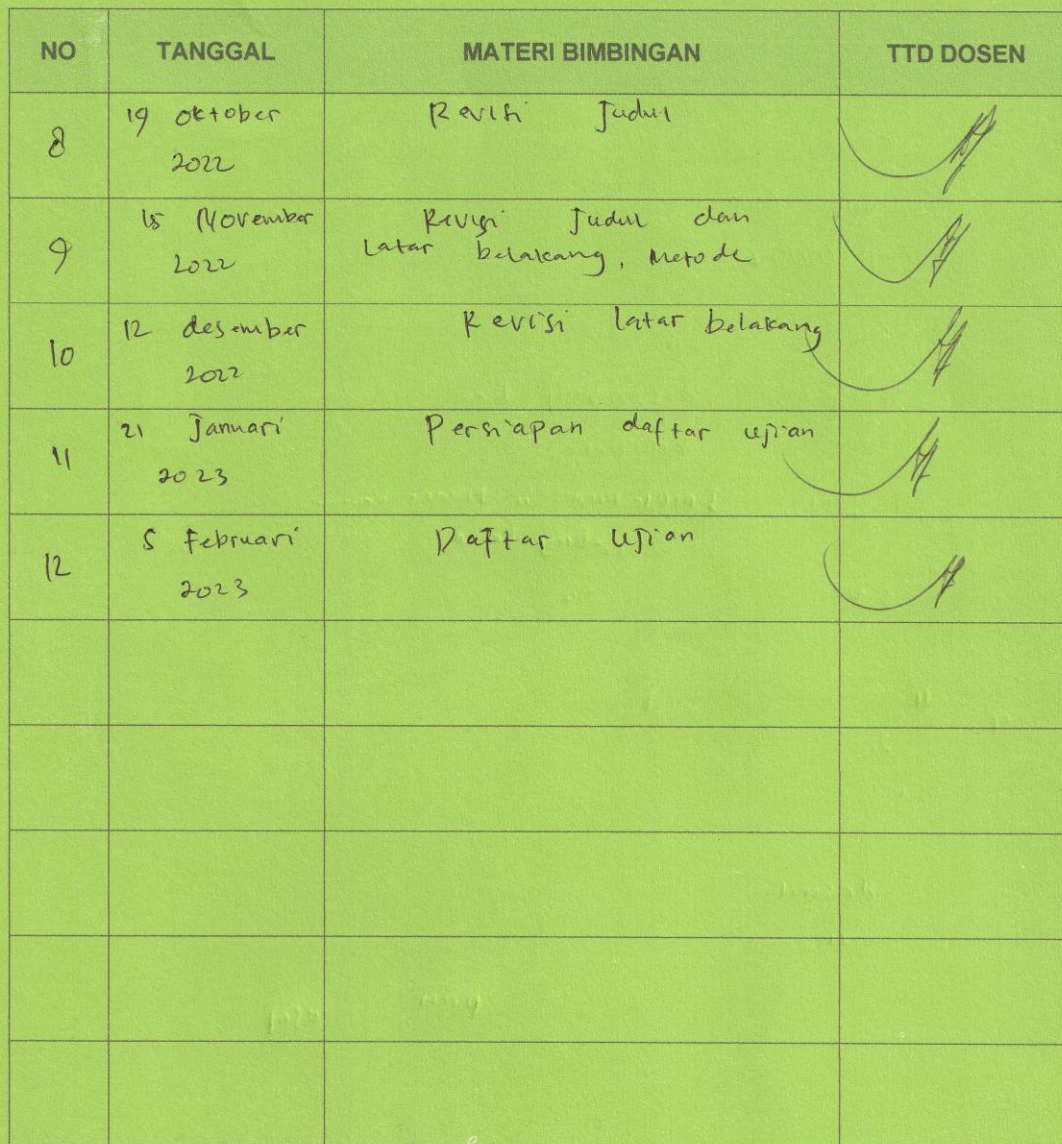 NO TANGGAL MATERI BIMBINGAN TTD DOSEN
8 19 oktober Revisi Judul
2022
9 15 November Revisi Judul dan
2022 Latar belakang, Metode
10 12 desember Revisi latar belakang
2022
11 21 Januari Persiapan daftar ujian
2023
12 5 Februari Daftar Ujian
2023